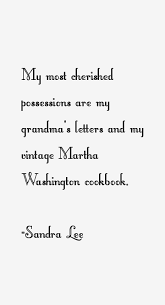 My most cherished
possessions are my
grandma's letters and my
vintage Martha
Washington cookbook.
-Sandra Lee